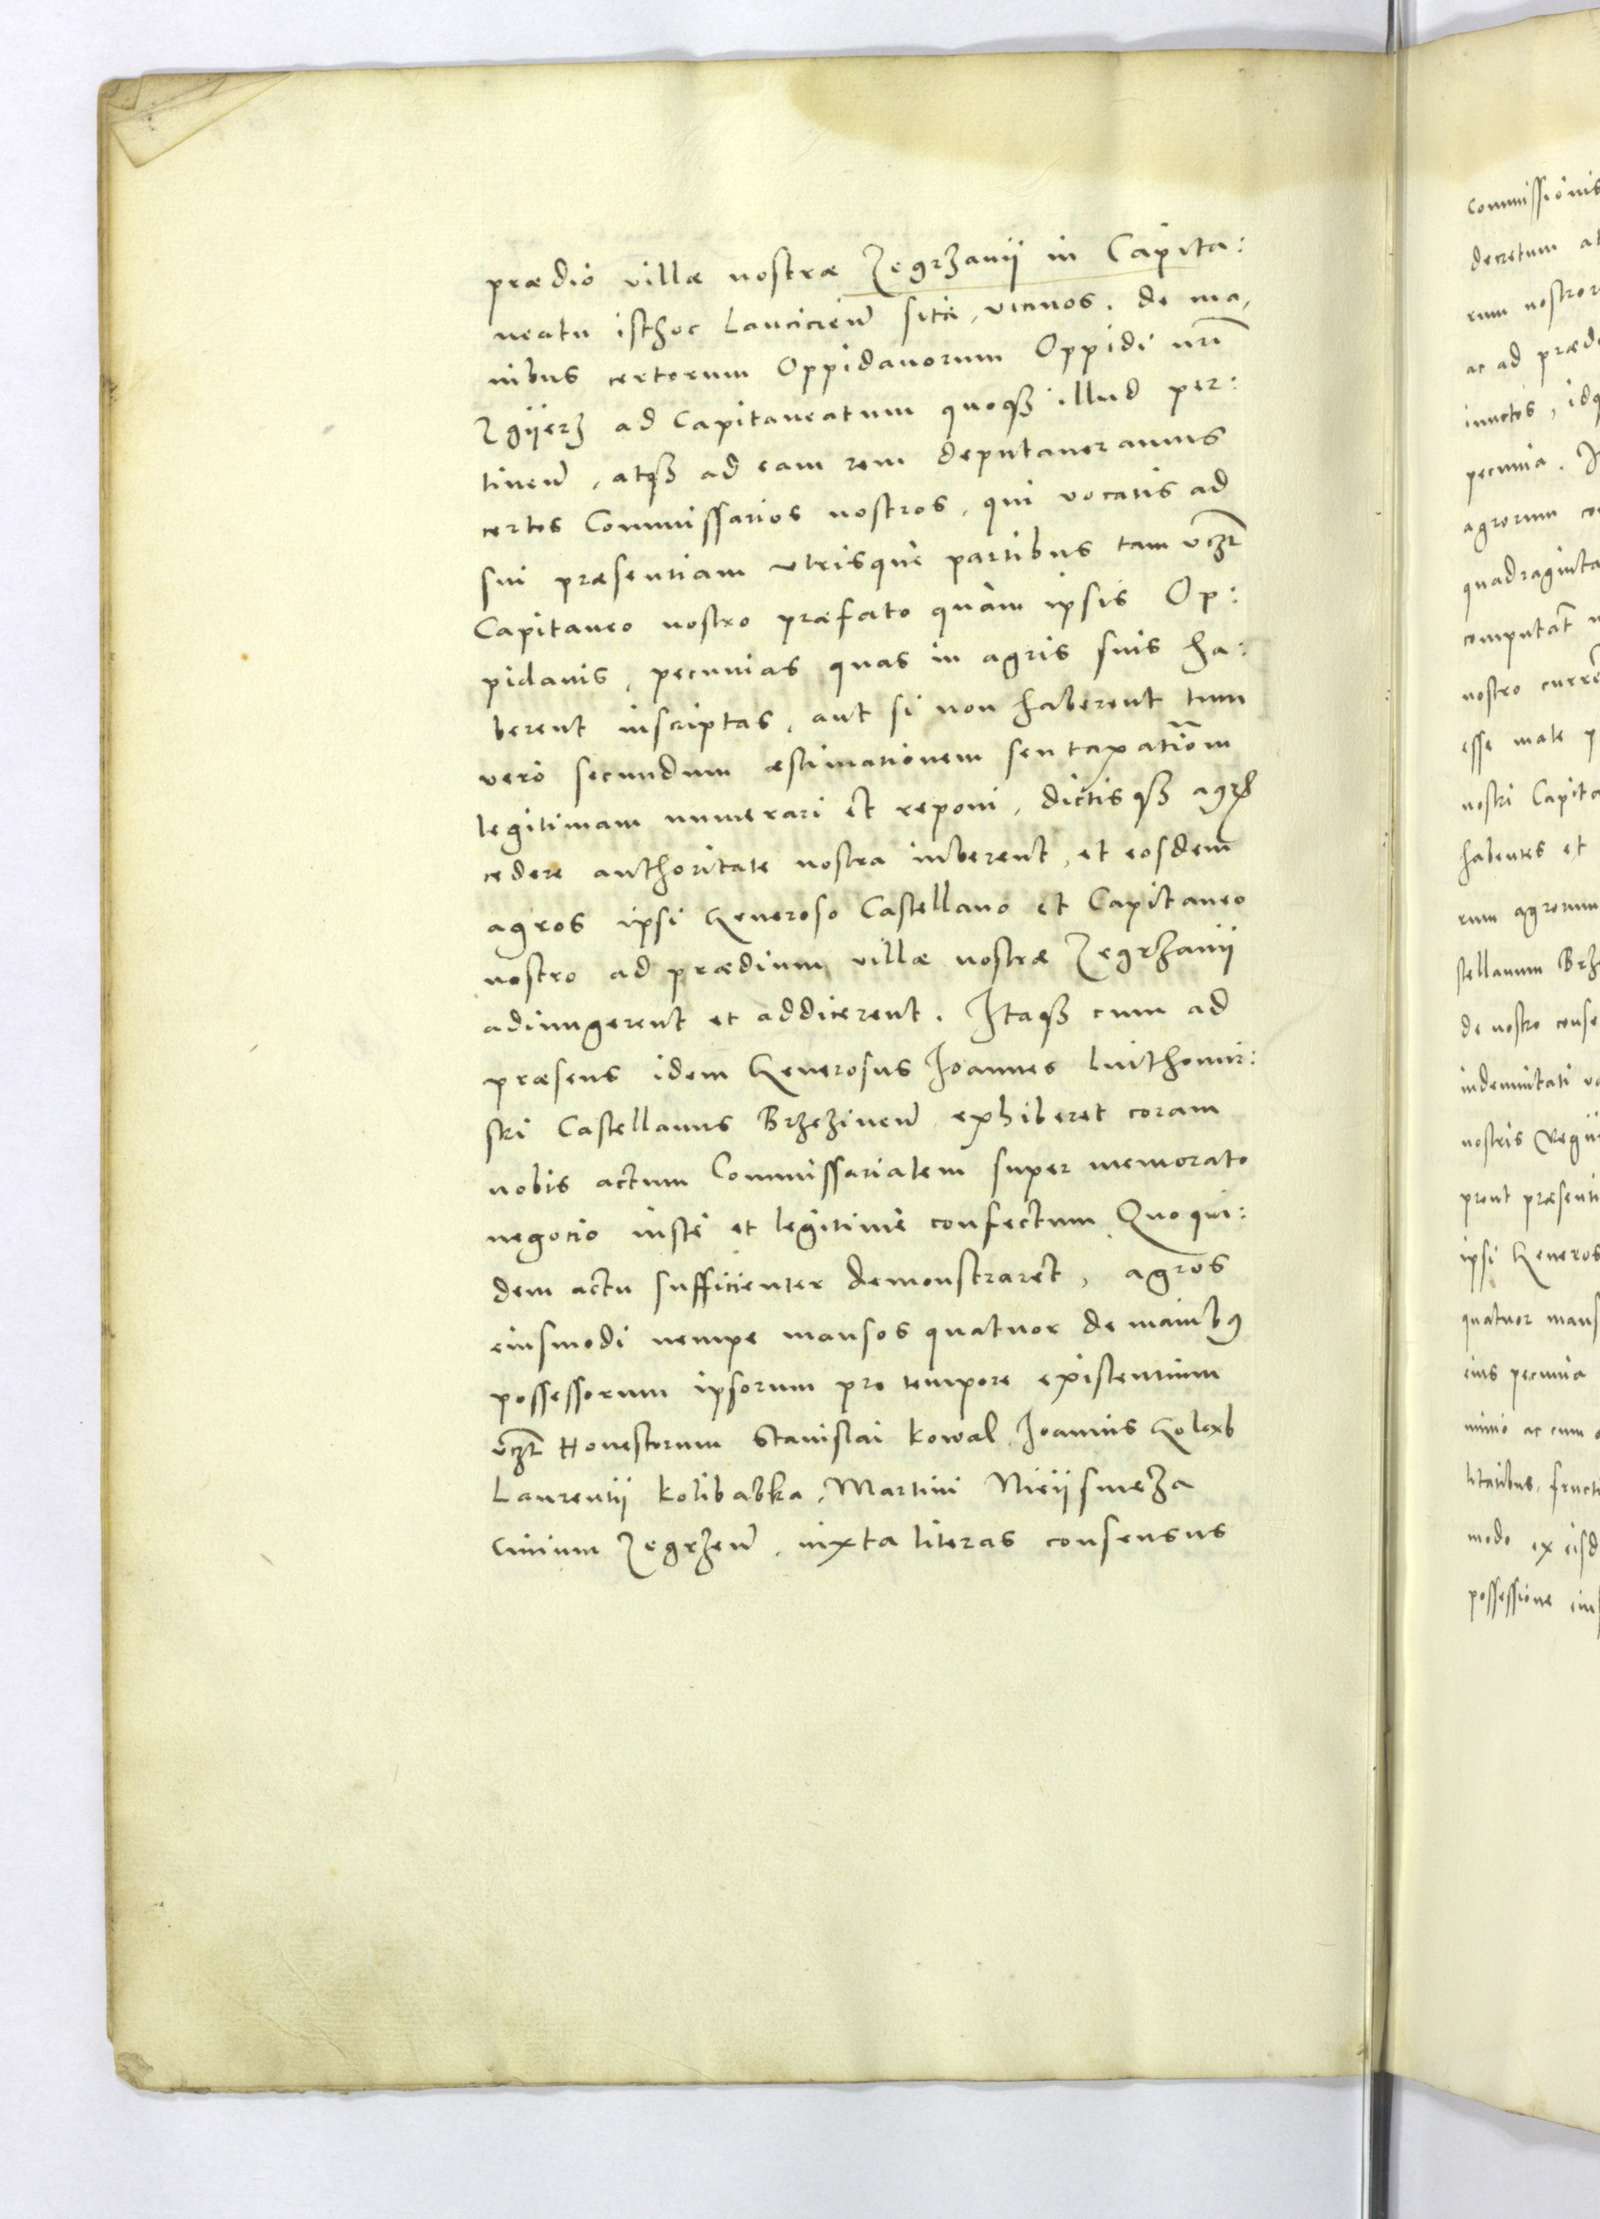 prædio villæ nostræ Zegrzanÿ in Capita:
neatu isthoc Lancicien̄ sitæ, vicinos, de ma,
nibus certorum Oppidanorum Oppidi nr̄i
Zgÿerz ad Capitaneatum quoqȝ illud per:
tinen̄, atqȝ ad eam rem deputaueramus
certos Commissarios nostros, qui vocatis ad
sui præsentiam vtrisque partibus tam vcꝫt
Capitaneo nostro præfato quàm ipsis Op:
pidanis, pecunias quas in agris suis ha:
berent inscriptas, aut si non haberent tum
verò secundum æstimationem seu taxatiōem
legitimam numerari et reponi, dictisqȝ agrꝭ
cedere authoritate nostra iuberent, et eosdem
agros ipsi Generoso Castellano et Capitaneo
nostro ad prædium villæ nostræ Zegrzanÿ
adiungerent et addicerent. Itaqȝ cum ad
præsens idem Generosus Joannes Luthomir:
ski Castellanus Brzezinen̄ exhiberet coram
nobis actum Commissarialem super memorato
negocio iustè et legitimè confectum, Quo qui:
dem actu sufficienter demonstraret, agros
eiusmodi nempe mansos quatuor de manibꝰ
possessorum ipsorum pro tempore existentium
vcꝫt Honestorum Stanislai Kowal, Joannis
Laurentÿ Kolibabka, Martini Nieÿsmeza
Ciuium Zegrzen̄, iuxta literas consensus
commissionis
decretum
rum nostror
ac ad præd
pecunia.
agrorum
quadraginta
computat
nostro
esse male
nostri Capita
habentes et
rum agrorum
stellanum Brze
de nostro conse
indemnitati
nostris Regÿ
prout præsenti
ipsi Generos
quatuor mans
eius pecunia
minio ac cum
litatibus, fructi
modo ex eisd
possessione